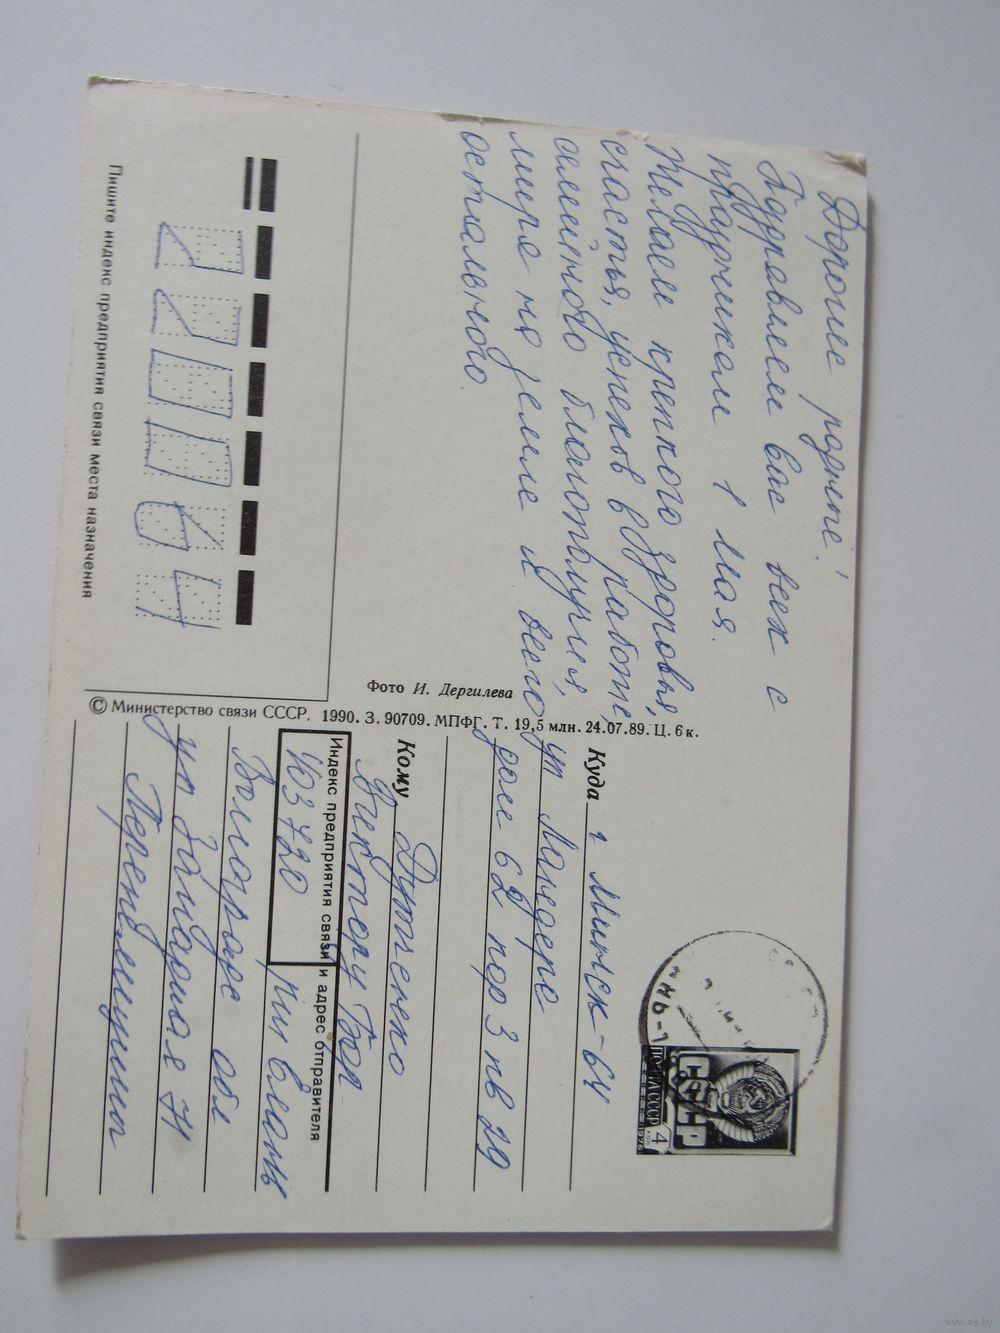 Дорогие родные!
Поздравляем вас всех с
праздником 1 мая.
Желаем крепкого здоровья,
счастья, успехов в работе,
семейного благополучия,
мира на земле и всего
остального.
220064
Пишите индекс предприятия связи места назначения
Фото И. Дергилева
© Министерство связи СССР. 1990. З. 90709. МПФГ. Т. 19,5 млн. 24.07.89. Ц. 6 к.
ПОЧТА СССР 4 КОП
СССР
1976
Куда г Минск-64
ул
дом 62 под 3 кв 29
Кому Дутченко
Виктору
Индекс предприятия связи и адрес отправителя
403720 рпп Елань
Волгоградс обл
ул 71
www.ay.by